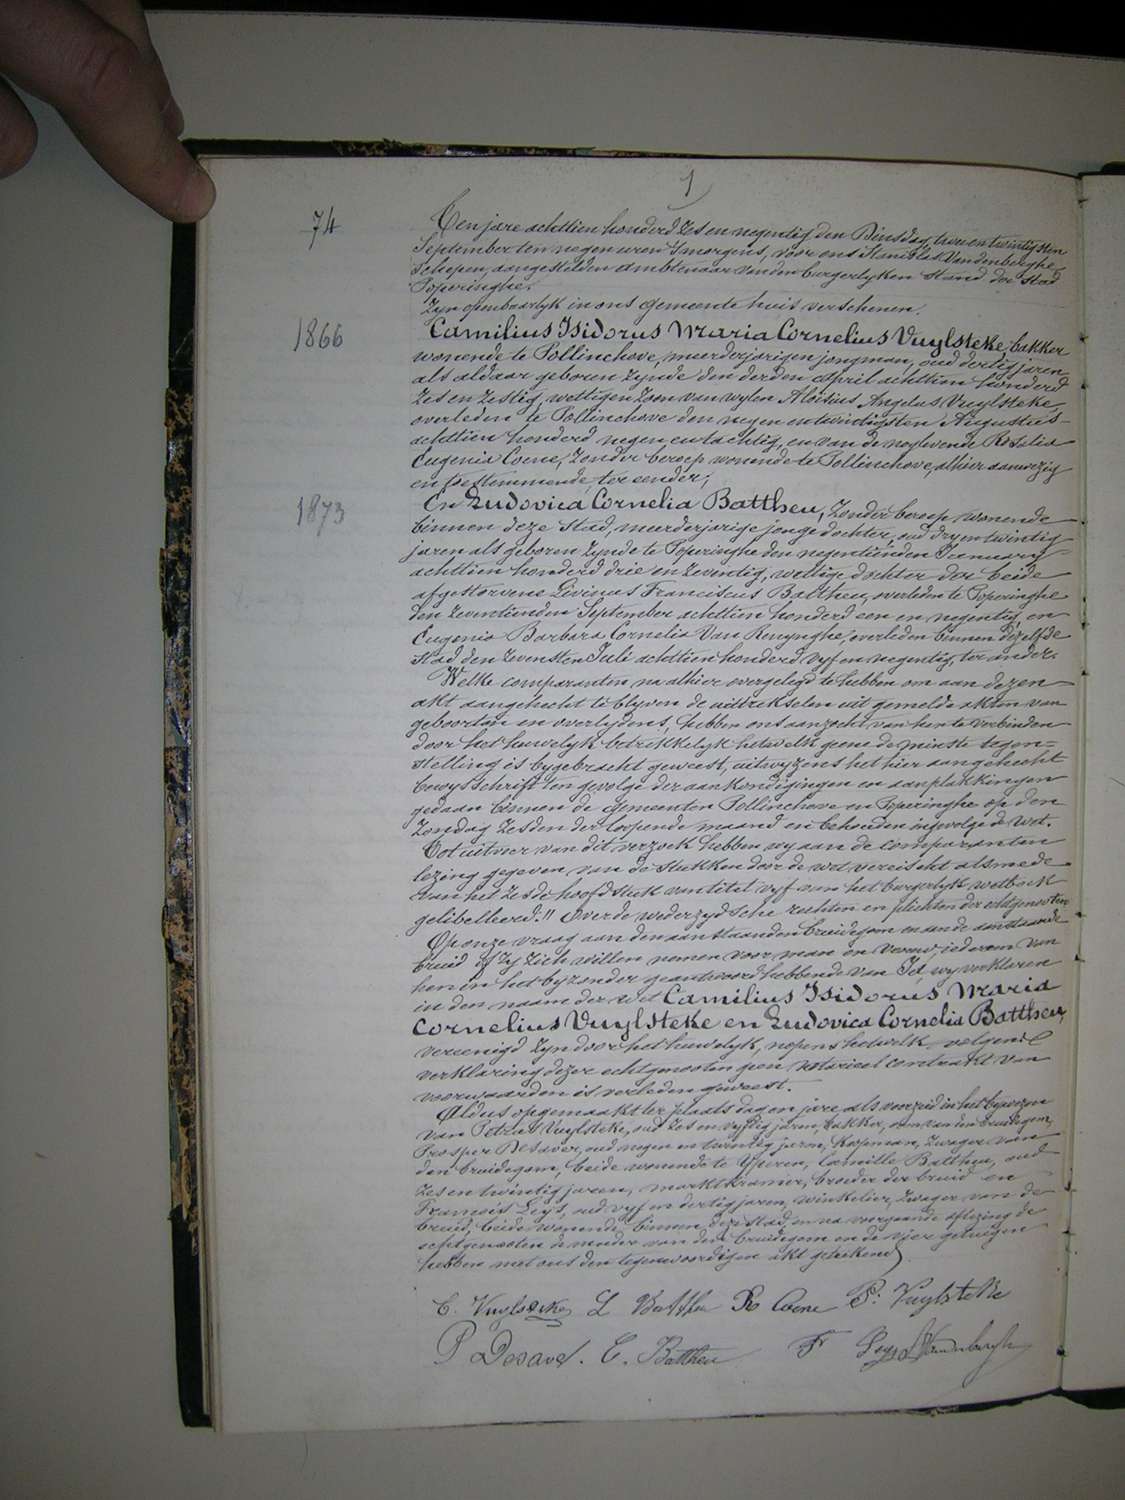 1
74
Ten jare achttien honderd zes en negentig den Dinsdag, twee en twintigsten
September ten negen uren s'morgens, voor ons Stanislas Vandenberghe,
Schepen, aangestelden ambtenaar van den burgerlyken stand der stad
Poperinghe.
Zyn openbaarlyk in ons gemeente huis verschenen.
1866
Camilius Isidorus Maria Cornelius Vuylsteke, bakker
wonende te Pollinchove, meerderjarigen jongman, oud dertig jaren
als aldaar geboren zynde den derden April achttien honderd
zes en zestig, wettigen zoon van wylen Aloisius Angelus Vuylsteke,
overleden te Pollinchove den negen en twintigsten Augustus
achttien honderd negen en tachtig, en van de noglevende Rosalia
Eugenia Coene, zonder beroep wonende te Pollinchove, alhier aanwezig
en toestemmende, ter eender;
1873
En Ludovica Cornelia Battheu, zonder beroep wonende
binnen deze stad, meerderjarige jonge dochter, oud dry en twintig
jaren als geboren zynde te Poperinghe den negentienden January
achttien honderd drie en zeventig, wettige dochter der beide
afgestorvene Livinus Franciscus Battheu, overleden te Poperinghe
den zeventienden September achttien honderd een en negentig, en
Eugenia Barbara Cornelia Van Renynghe, overleden binnen dezelfde
stad den zevensten Juli achttien honderd vyf en negentig, ter ander.
Welke comparanten na alhier overgelegd te hebben om aan dezen
akt aangehecht te blyven de uittrekselen uit gemelde akten van
geboorten en overlydens, hebben ons aanzocht van hen te verbinden
door het huwelyk betrekkelyk hetwelk geene de minste tegen=
stelling is bygebracht geweest, uitwyzens het hier aangehecht
bewysschrift ten gevolge der aankondigingen en aanplakkingen
gedaan binnen de gemeenten Pollinchove en Poperinghe op den
Zondag zesden der loopende maand en behouden ingevolge de Wet.
Tot uitvoer van dit verzoek hebben wy aan de comparanten
lezing gegeven van de stukken door de wet vereischt alsmede
van het zesde hoofdstuk van titel vyf van het burgerlyk wetboek
gelibelleerd: " Over de wederzydsche rechten en plichten der echtgenooten
Op onze vraag aan den aanstaanden bruidegom en aan de aanstaande
bruid of zy zich willen nemen voor man en vrouw, iedereen van
hen in het byzonder geantwoord hebbende van Ja, wy verklaren
in den naam der wet Camilius Isidorus Maria
Cornelius Vuylsteke en Ludovica Cornelia Battheu,
vereenigd zyn door het huwelyk, nopens hetwelk volgens
verklaring dezer echtgenooten geen notarieel contrakt van
voorwaarden is verleden geweest.
Aldus opgemaakt ter plaats dag en jare als voorzeid in het bywezen
van Petrus Vuylsteke, oud zes en vyftig jaren, bakker, oom van den bruidegom,
Prosper Desaver, oud negen en twintig jaren, koopman, zwager van
den bruidegom, beide wonende te Yperen, Camille Battheu, oud
zes en twintig jaren, marktkramer, broeder der bruid en
Francois Leys, oud vyf en dertig jaren, winkelier, zwager van de
bruid, beide wonende binnen deze stad, en na voorgaande aflezing de
echtgenooten de moeder van den bruidegom en de vier getuigen
hebben met ons den tegenwoordigen akt geteekend
C. Vuylsteke L Battheu Ro Coene P. Vuylsteke
P Desaver. C. Battheu Fr Leys S Vandenberghe